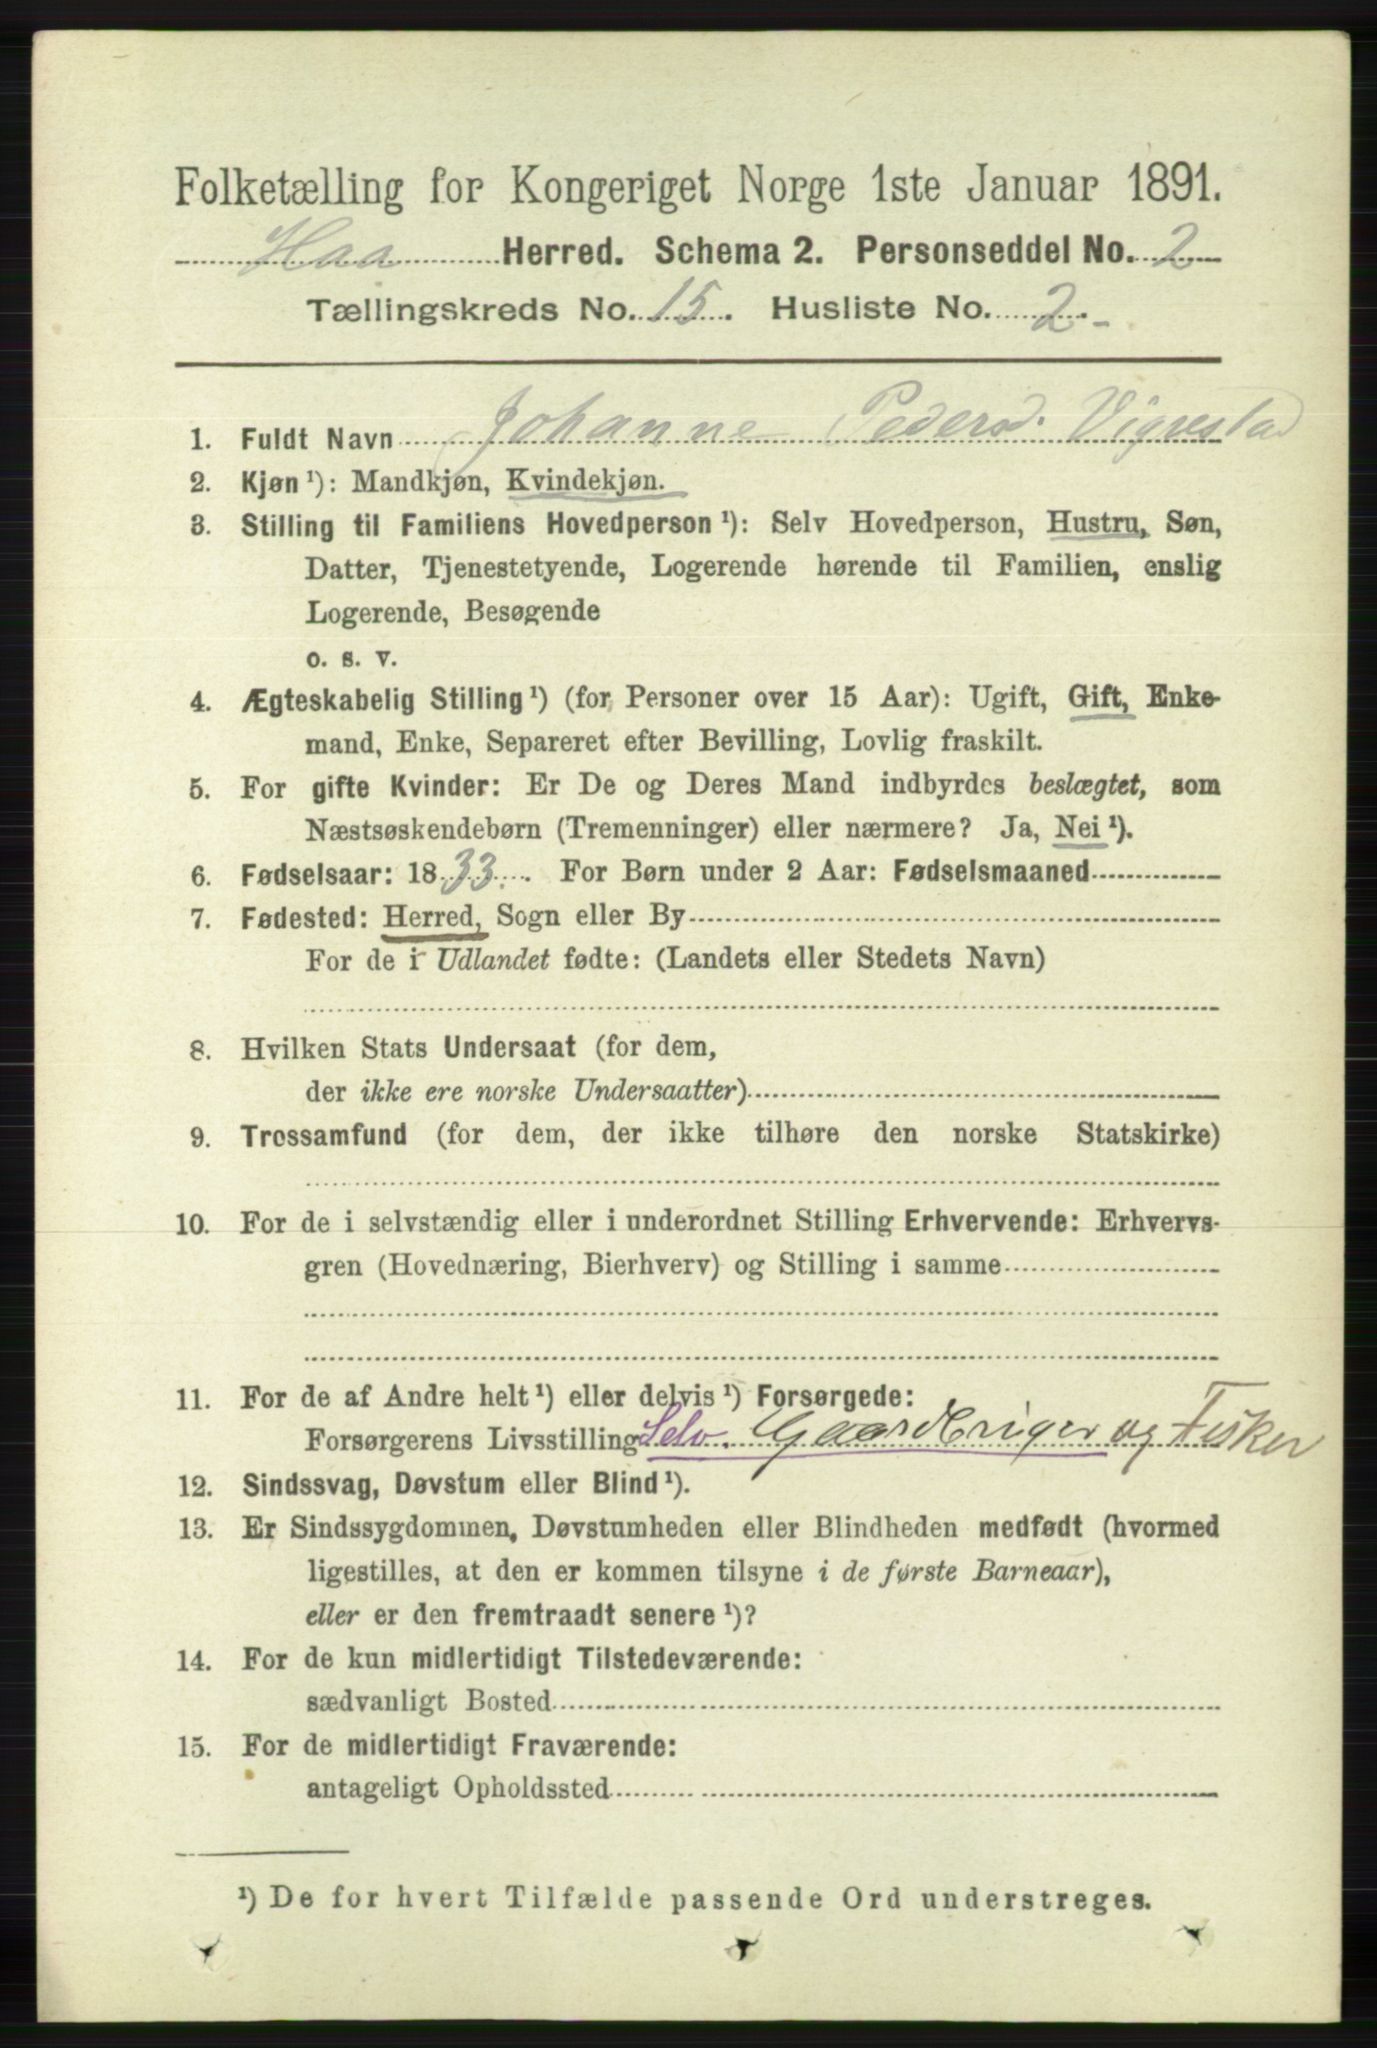 Folketælling for Kongeriget Norge 1ste Januar 1891.
Haa Herred. Schema 2. Personseddel No. 2
Tællingskreds No. 15. Husliste No. 2
1. Fuldt Navn Johanne Pedersd. Vigrestad
2. Kjøn ¹): Mandkjøn, Kvindekjøn.
3. Stilling til Familiens Hovedperson ¹): Selv Hovedperson, Hustru, Søn,
Datter, Tjenestetyende, Logerende hørende til Familien, enslig
Logerende, Besøgende
o. s. v.
4. Ægteskabelig Stilling ¹) (for Personer over 15 Aar): Ugift, Gift, Enke-
mand, Enke, Separeret efter Bevilling, Lovlig fraskilt.
5. For gifte Kvinder: Er De og Deres Mand indbyrdes beslægtet, som
Næstsøskendebørn (Tremenninger) eller nærmere? Ja, Nei ¹).
6. Fødselsaar: 1833. For Børn under 2 Aar: Fødselsmaaned
7. Fødested: Herred, Sogn eller By
For de i Udlandet fødte: (Landets eller Stedets Navn)
8. Hvilken Stats Undersaat (for dem,
der ikke ere norske Undersaatter)
9. Trossamfund (for dem, der ikke tilhøre den norske Statskirke)
10. For de i selvstændig eller i underordnet Stilling Erhvervende: Erhvervs-
gren (Hovednæring, Bierhverv) og Stilling i samme
11. For de af Andre helt ¹) eller delvis ¹) Forsørgede:
Forsørgerens Livsstilling Selv. Gaardbruger og Fisker
12. Sindssvag, Døvstum eller Blind ¹).
13. Er Sindssygdommen, Døvstumheden eller Blindheden medfødt (hvormed
ligestilles, at den er kommen tilsyne i de første Barneaar),
eller er den fremtraadt senere ¹)?
14. For de kun midlertidigt Tilstedeværende:
sædvanligt Bosted
15. For de midlertidigt Fraværende:
antageligt Opholdssted
¹) De for hvert Tilfælde passende Ord understreges.